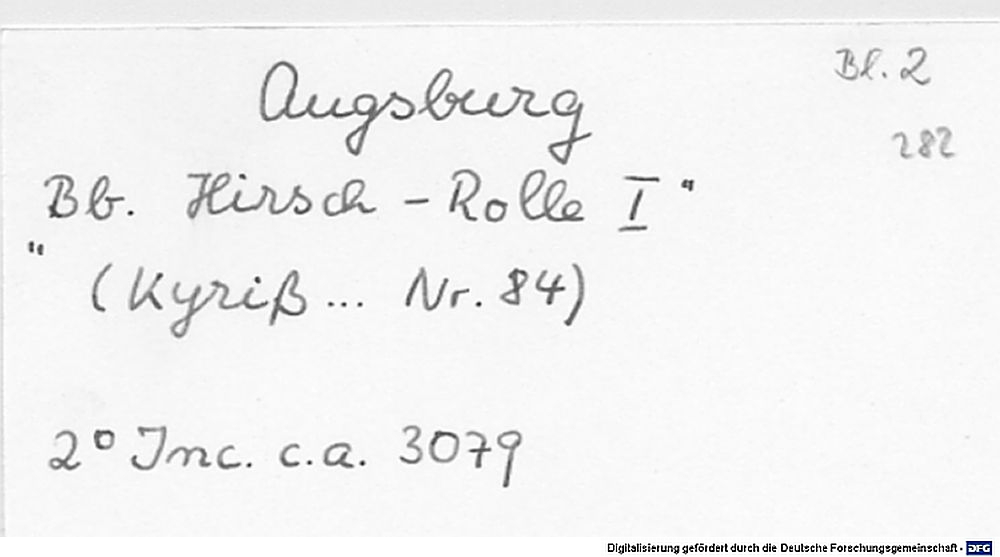 Bl. 2
Augsburg
282
Bb. Hirsch - Rolle I"
"
(Kyriß... Nr. 84)
2° Inc. c.a. 3079
Digitalisierung gefördert durch die Deutsche Forschungsgemeinschaft - DFG